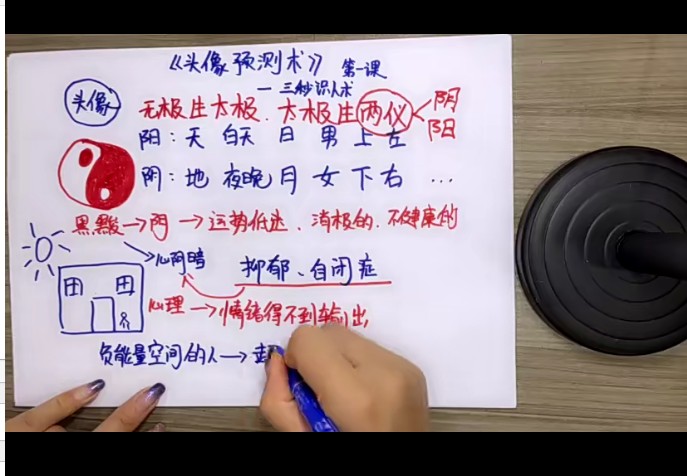 《头像预测术》 第一课
— 三秒识人术
头像
无极生太极、太极生两仪
阴
阳
阳：天 白天 日 男 上 左
阴：地 夜晚 月 女 下 右 …
黑黢→阴→运势低迷、消极的、不健康的
心阴暗
抑郁、自闭症
心理→情绪得不到输出，
负能量空间的人→